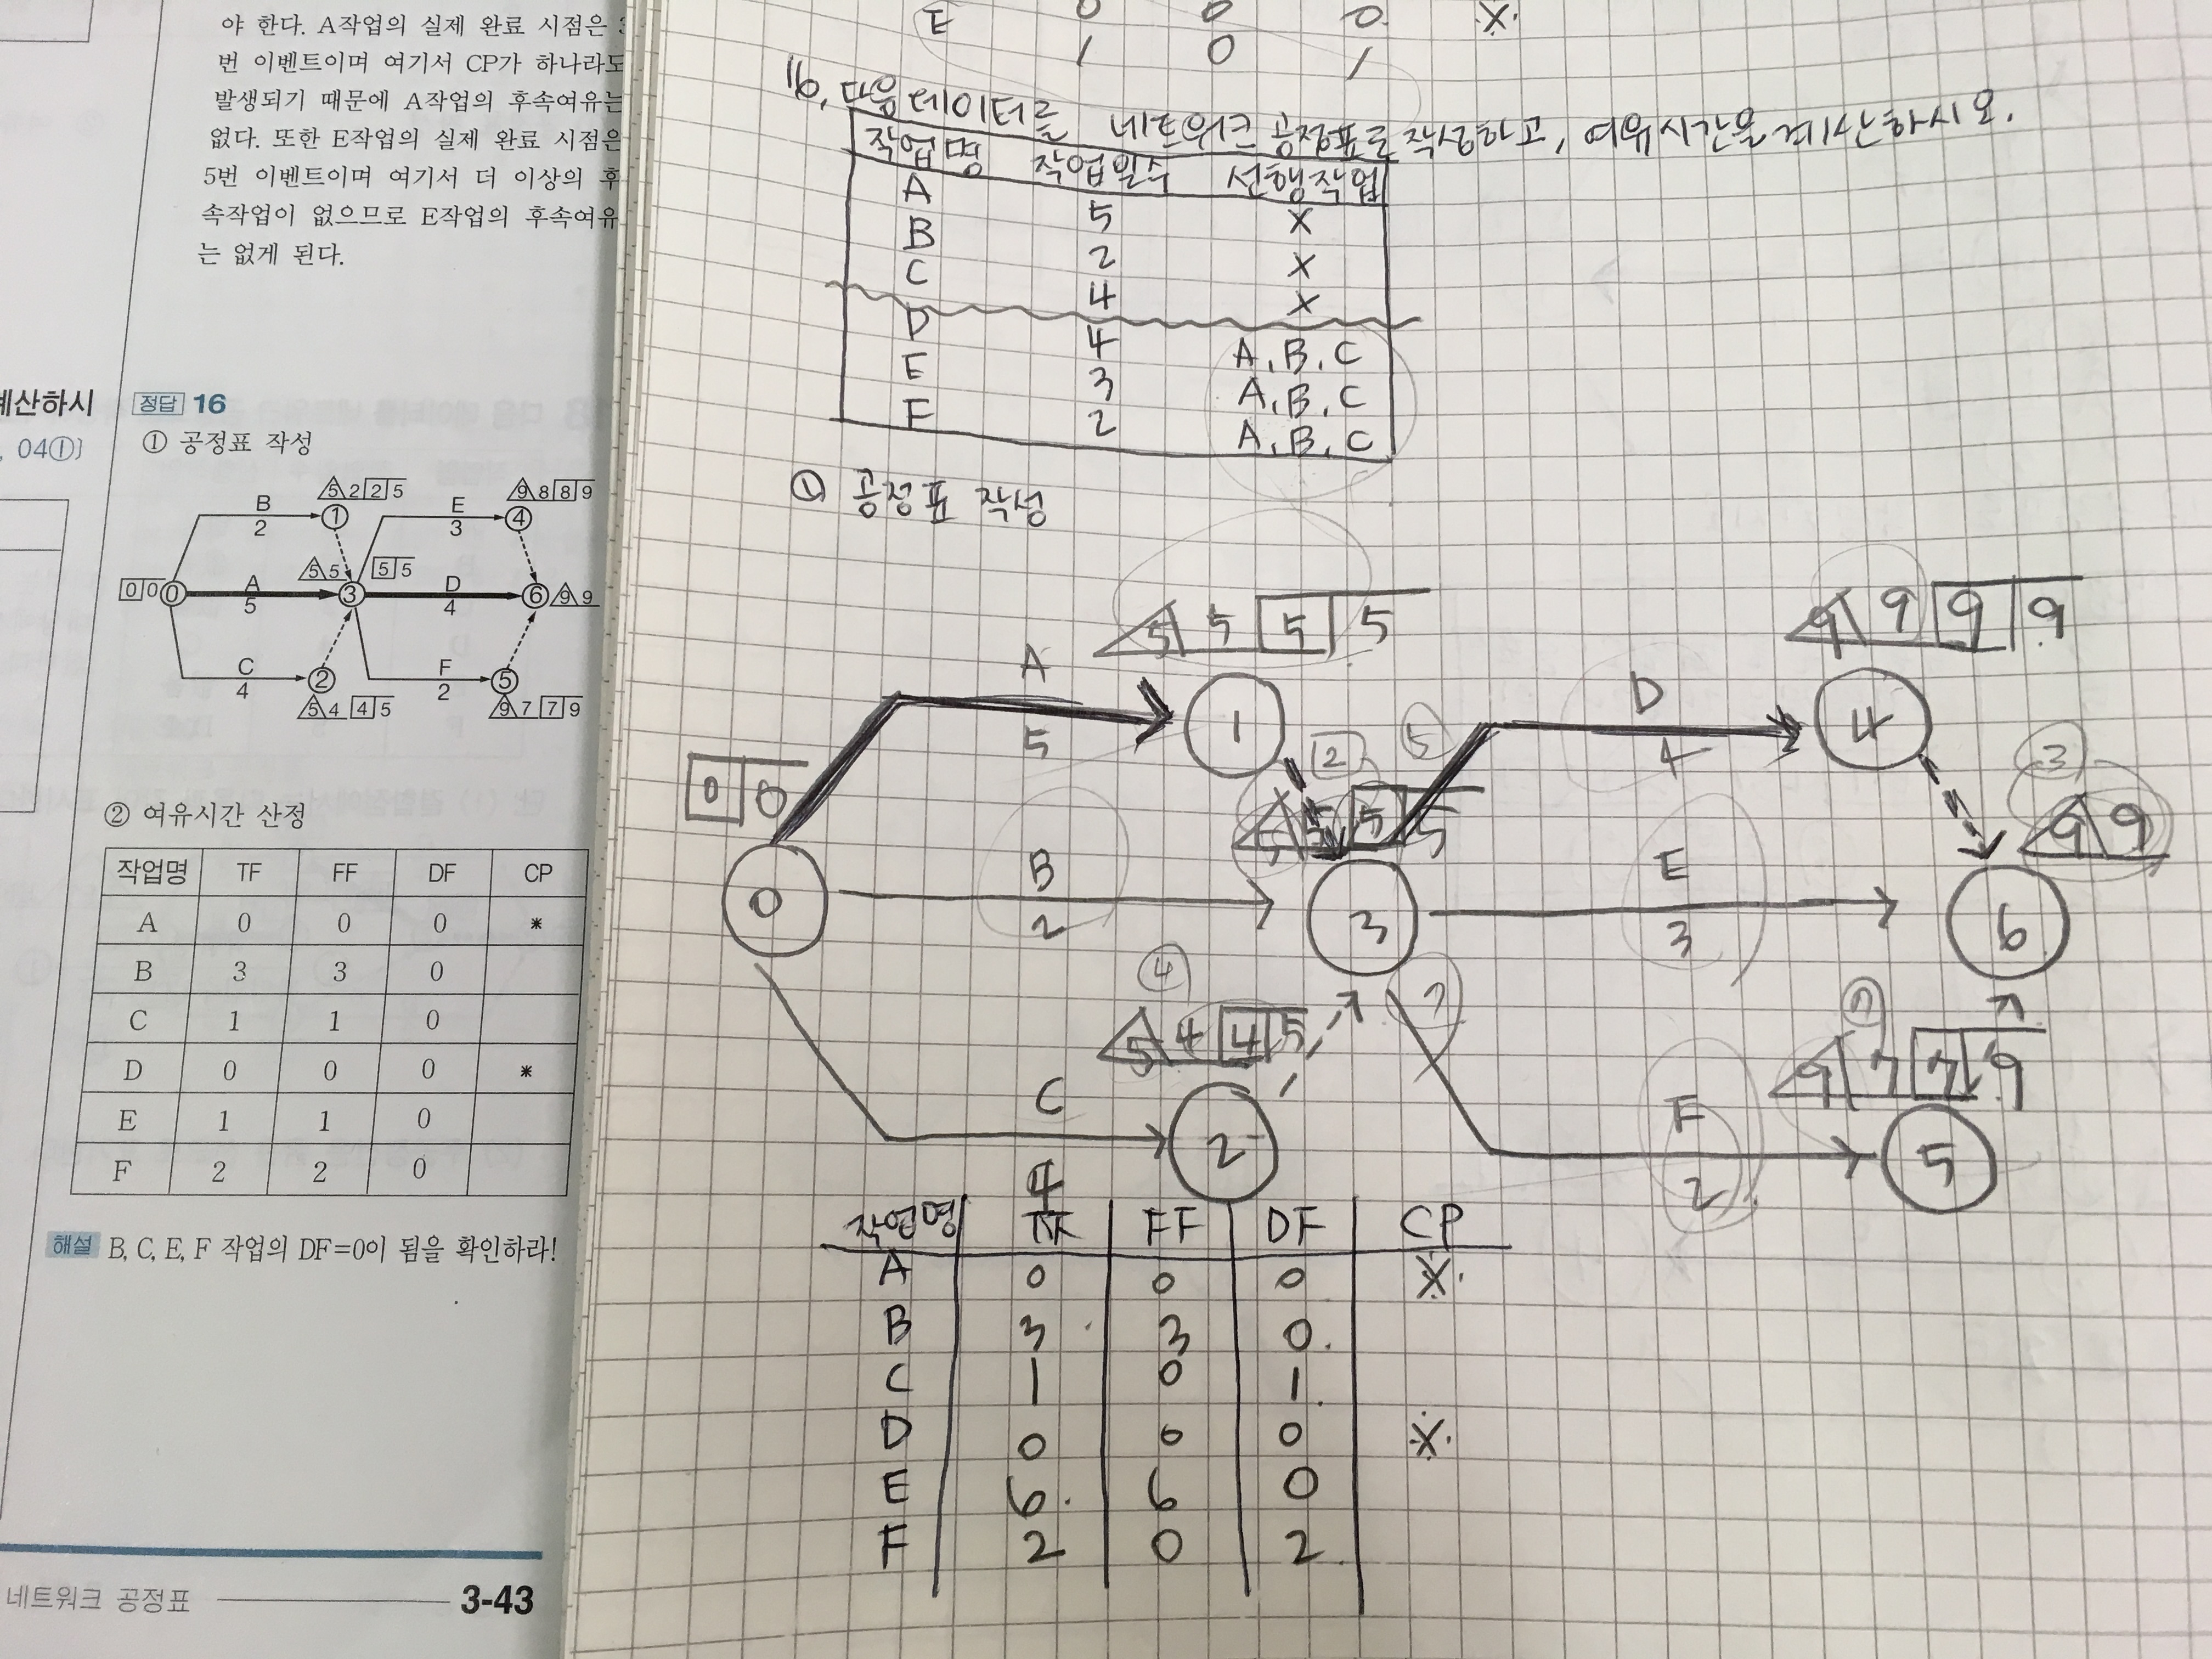 야 한다. A작업의 실제 완료 시점은 3
번 이벤트이며 여기서 CP가 하나라도
발생되기 때문에 A작업의 후속여유는
없다. 또한 E작업의 실제 완료 시점은
5번 이벤트이며 여기서 더 이상의 후
속작업이 없으므로 E작업의 후속여유
는 없게 된다.
계산하시
, 04①]
정답 16
① 공정표 작성
5 2 2 5
9 8 8 9
B
2
1
E
3
4
5 5
5 5
0 0
0
A
5
3
D
4
6
9 9
C
4
2
F
2
5
5 4 4 5
9 7 7 9
② 여유시간 산정
작업명 TF FF DF CP
A 0 0 0 *
B 3 3 0
C 1 1 0
D 0 0 0 *
E 1 1 0
F 2 2 0
해설 B, C, E, F 작업의 DF=0이 됨을 확인하라!
네트워크 공정표
3-43
E 0 0 0 ※
1 0 1
16. 다음 데이터를 네트워크 공정표로 작성하고, 여유시간을 계산하시오.
작업명 작업일수 선행작업
A 5 X
B 2 X
C 4 X
D 4 A, B, C
E 3 A, B, C
F 2 A, B, C
① 공정표 작성
5 5 5 5
9 9 9 9
A
5
1
D
4
4
2
5
3
0 0
5 5 5 5
9 9
0
B
2
3
E
3
6
4
7
7
5 4 4 5
9 7 7 9
C
4
2
F
2
5
작업명 TF FF DF CP
A 0 0 0 ※
B 3 3 0
C 1 0 1
D 0 0 0 ※
E 6 6 0
F 2 0 2